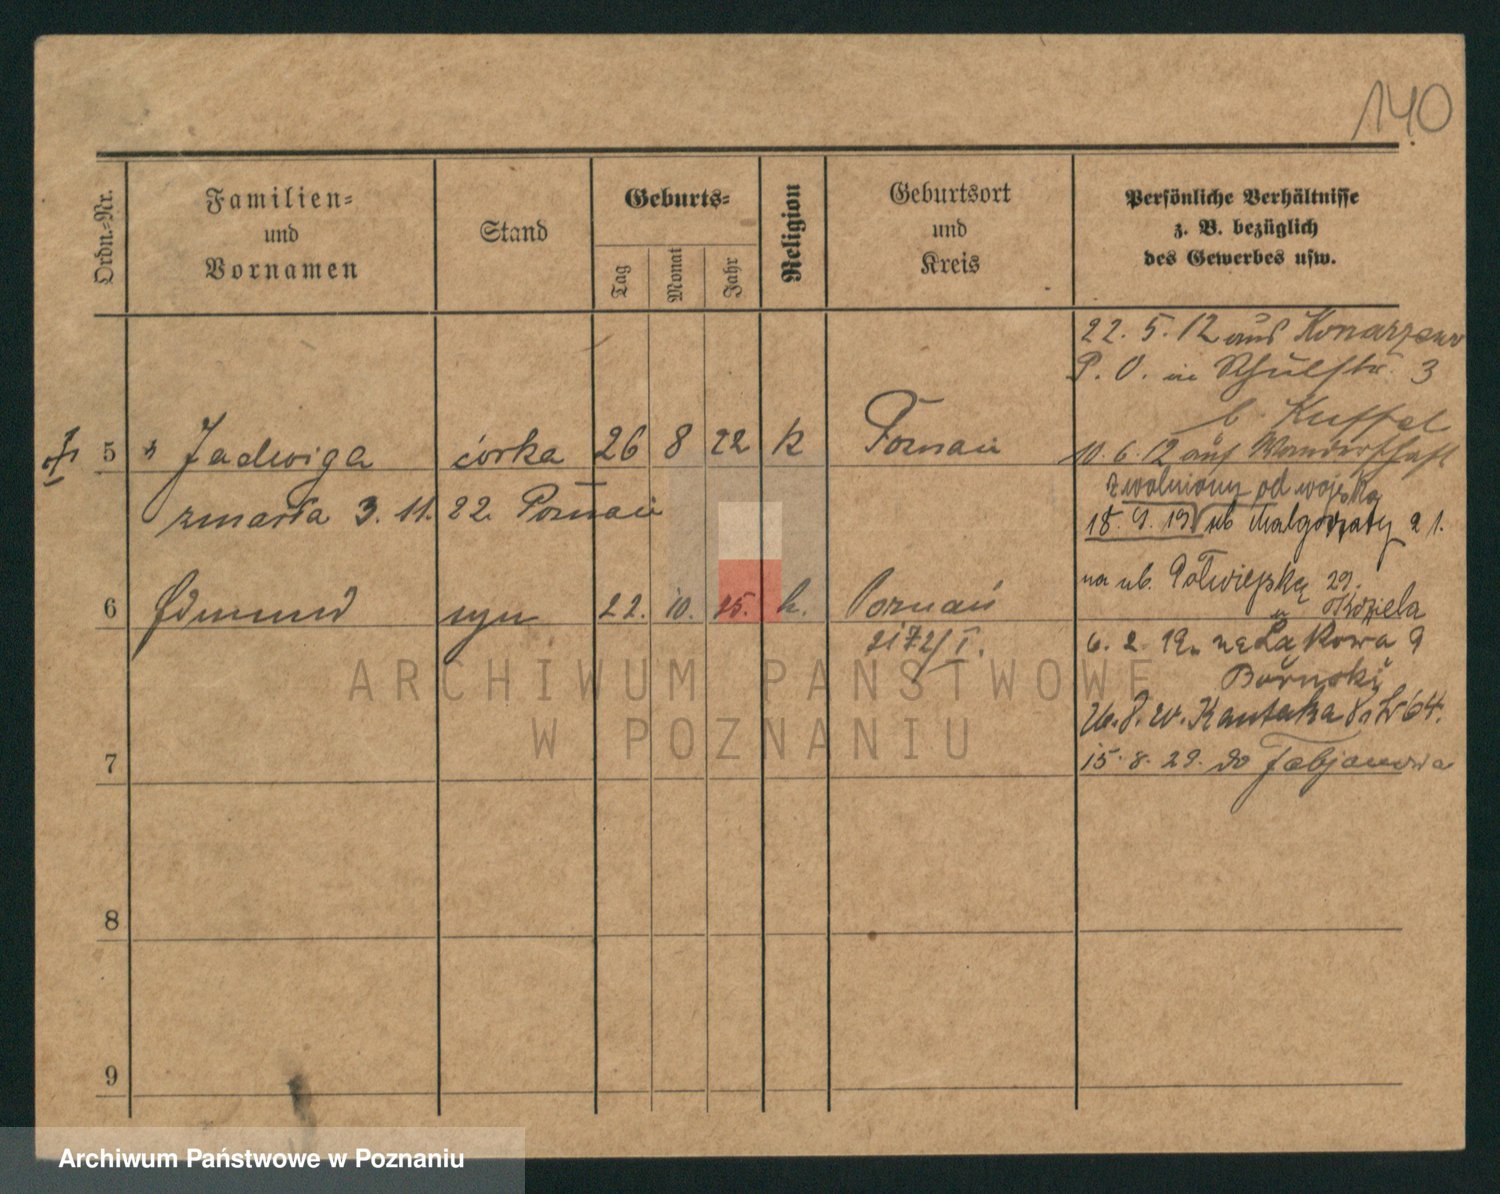 140
Ordn.-Nr.
Familien-
und
Vornamen
Stand
Geburts-
Tag
Monat
Jahr
Religion
Geburtsort
und
Kreis
Persönliche Verhältnisse
z. B. bezüglich
des Gewerbes usw.
22. 5. 12 aus Konarzewo
P. O. in Schulstr. 3
b. Kuffel
10. 6. 12 auf Wanderschaft
5 Jadwiga córka 26 8 22 k Poznań
zmarła 3. 11. 22. Poznań
zwolniony od wojska
18. 9. 19 ub Małgorzaty 21.
na ub. Półwiejską 29.
u Kądziela
6 Edmund syn 22. 10. 25. k. Poznań
2172/I.
6. 2. 19. na Łąkowa 9
Bórnski
26. 8. 20. Kantaka 8/9
15. 8. 29. do Fabjanowa
7
8
9
ARCHIWUM PAŃSTWOWE
W POZNANIU
Archiwum Państwowe w Poznaniu